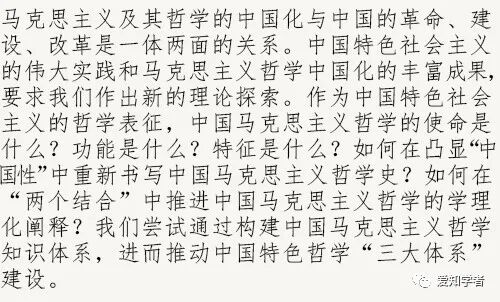 马克思主义及其哲学的中国化与中国的革命、建
设、改革是一体两面的关系。中国特色社会主义
的伟大实践和马克思主义哲学中国化的丰富成果,
要求我们作出新的理论探索。作为中国特色社会
主义的哲学表征，中国马克思主义哲学的使命是
什么？功能是什么？特征是什么？如何在凸显“中
国性”中重新书写中国马克思主义哲学史？如何在
“两个结合”中推进中国马克思主义哲学的学理
化阐释？我们尝试通过构建中国马克思主义哲学
知识体系，进而推动中国特色哲学“三大体系”
建设。
爱知学者